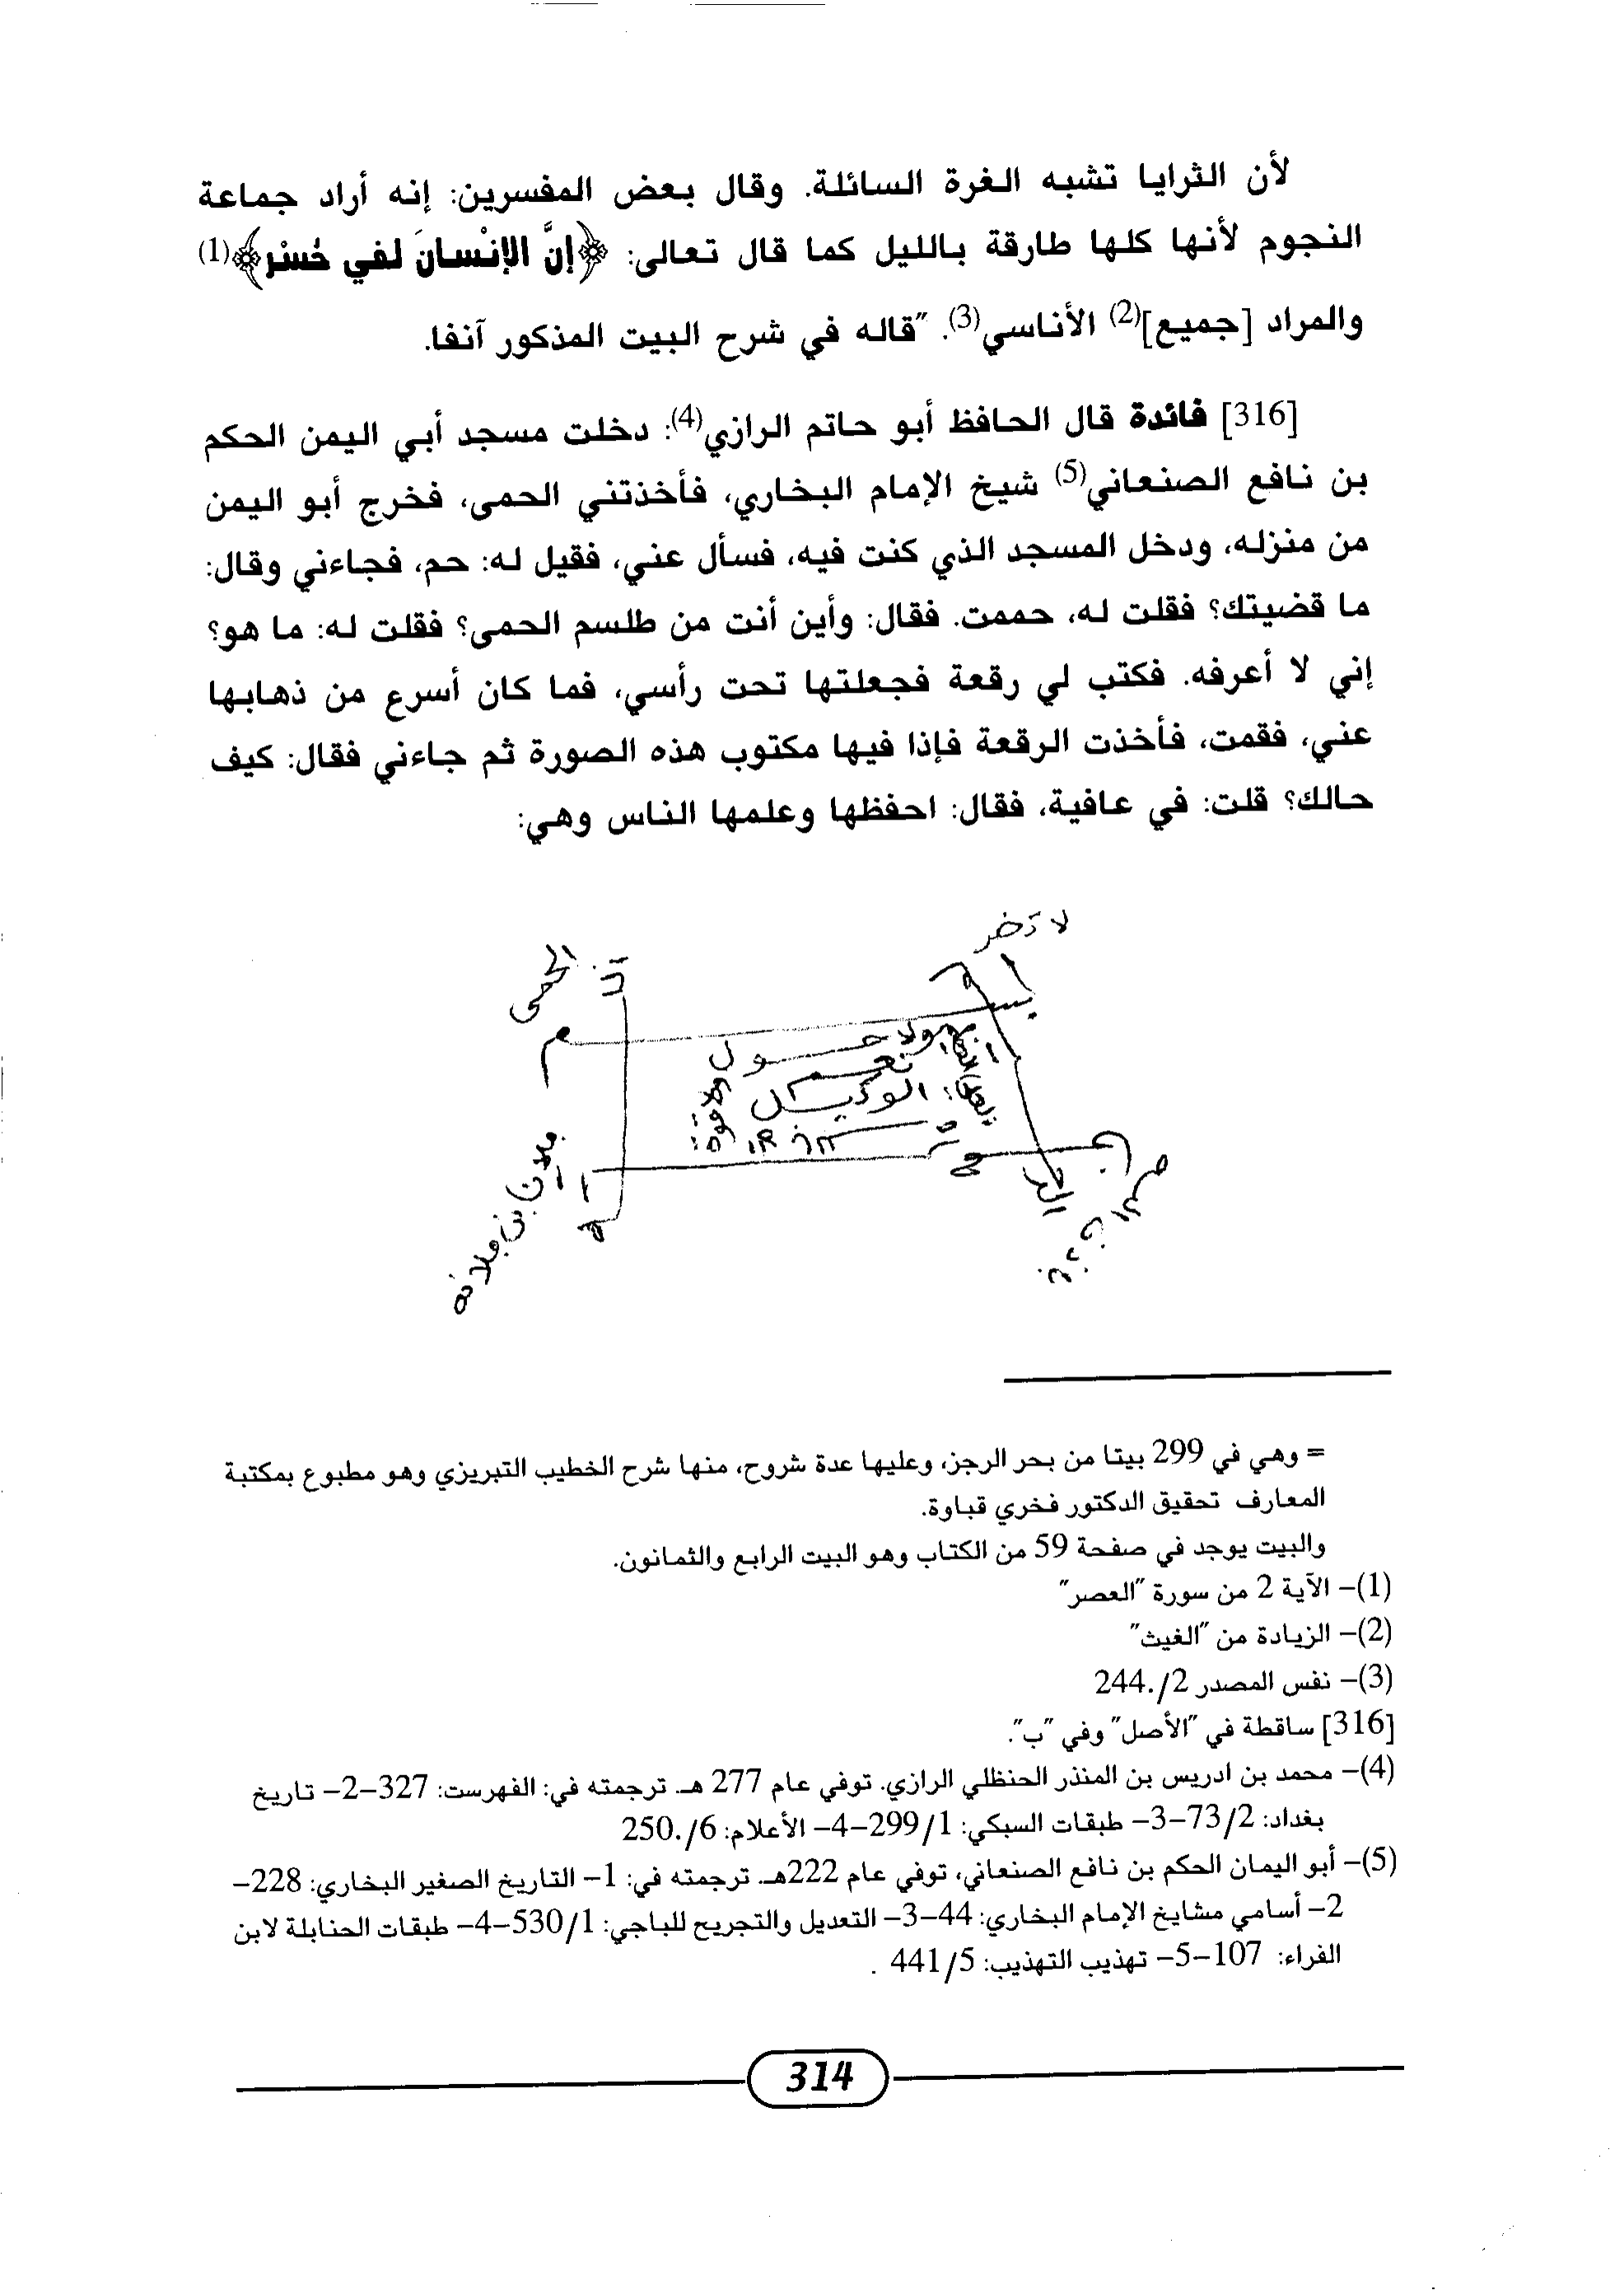 لأن الثرايا تشبه الغرة السائلة. وقال بعض المفسرين: إنه أراد جماعة
النجوم لأنها كلها طارقة بالليل كما قال تعالى: ﴿إنَّ الإنْسانَ لفي خُسْر﴾(1)
والمراد [جميع](2) الأناسي(3). "قاله في شرح البيت المذكور آنفا.
[316] فائدة قال الحافظ أبو حاتم الرازي(4): دخلت مسجد أبي اليمن الحكم
بن نافع الصنعاني(5) شيخ الإمام البخاري، فأخذتني الحمى، فخرج أبو اليمن
من منزله، ودخل المسجد الذي كنت فيه، فسأل عني، فقيل له: حم، فجاءني وقال:
ما قضيتك؟ فقلت له، حممت. فقال: وأين أنت من طلسم الحمى؟ فقلت له: ما هو؟
إني لا أعرفه. فكتب لي رقعة فجعلتها تحت رأسي، فما كان أسرع من ذهابها
عني، فقمت، فأخذت الرقعة فإذا فيها مكتوب هذه الصورة ثم جاءني فقال: كيف
حالك؟ قلت: في عافية، فقال: احفظها وعلمها الناس وهي:
الحمى
ولا حول
ولا قوة
نعم
الوكيل
= وهي في 299 بيتا من بحر الرجز، وعليها عدة شروح، منها شرح الخطيب التبريزي وهو مطبوع بمكتبة
المعارف تحقيق الدكتور فخري قباوة.
والبيت يوجد في صفحة 59 من الكتاب وهو البيت الرابع والثمانون.
(1)– الآية 2 من سورة "العصر"
(2)– الزيادة من "الغيث"
(3)– نفس المصدر 2/.244
[316] ساقطة في "الأصل" وفي "ب".
(4)– محمد بن ادريس بن المنذر الحنظلي الرازي. توفي عام 277 هـ. ترجمته في: الفهرست: 327–2– تاريخ
بغداد: 73/2–3– طبقات السبكي: 299/1–4– الأعلام: 6/.250
(5)– أبو اليمان الحكم بن نافع الصنعاني، توفي عام 222هـ. ترجمته في: 1– التاريخ الصغير البخاري: 228–
2– أسامي مشايخ الإمام البخاري: 44–3– التعديل والتجريح للباجي: 530/1–4– طبقات الحنابلة لابن
الفراء: 107–5– تهذيب التهذيب: 441/5 .
314